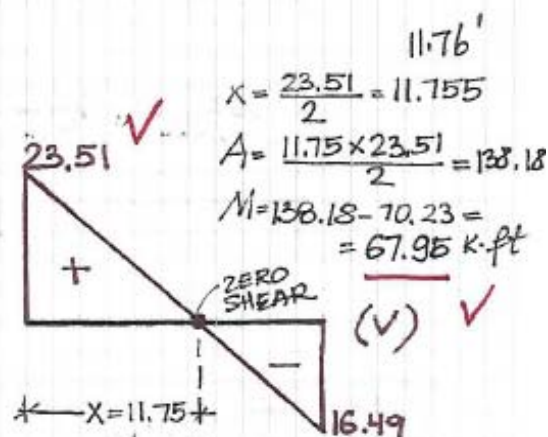 11.76'
X = 23.51 / 2 = 11.755
23.51 ✓
A = 11.75 x 23.51 / 2 = 138.18
M = 138.18 - 70.23 =
= 67.95 K·ft
+
ZERO
SHEAR
(V) ✓
-
X = 11.75
16.49